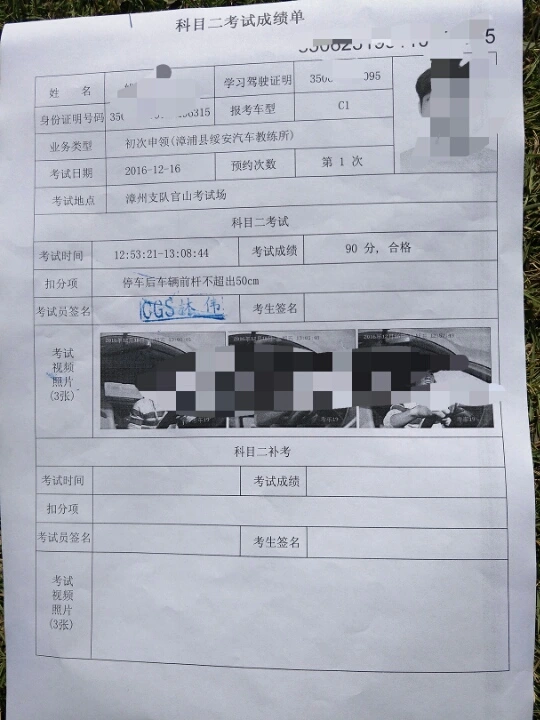 科目二考试成绩单
姓 名 学习驾驶证明 095
身份证明号码 315 报考车型 C1
业务类型 初次申领(漳浦县绥安汽车教练所)
考试日期 2016-12-16 预约次数 第 1 次
考试地点 漳州支队官山考试场
科目二考试
考试时间 12:53:21-13:08:44 考试成绩 90 分,合格
扣分项 停车后车辆前杆不超出50cm
考试员签名 CGS林伟 考生签名
考试
视频
照片
(3张)
科目二补考
考试时间 考试成绩
扣分项
考试员签名 考生签名
考试
视频
照片
(3张)